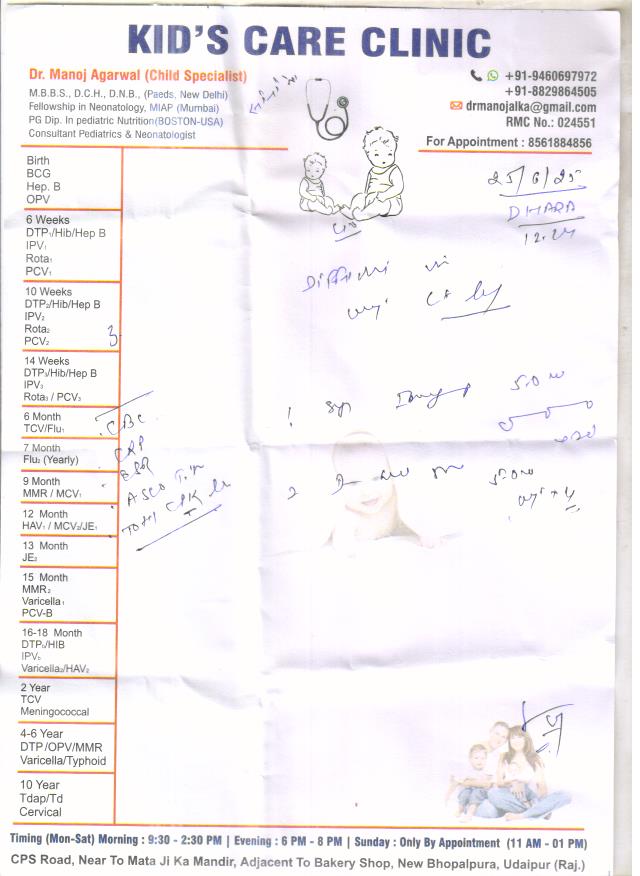 KID'S CARE CLINIC
Dr. Manoj Agarwal (Child Specialist)
M.B.B.S., D.C.H., D.N.B., (Paeds, New Delhi)
Fellowship in Neonatology, MIAP (Mumbai)
PG Dip. In pediatric Nutrition(BOSTON-USA)
Consultant Pediatrics & Neonatologist
+91-9460697972
+91-8829864505
drmanojalka@gmail.com
RMC No.: 024551
For Appointment : 8561884856
25/6/25
DHARA
12.24
Birth
BCG
Hep. B
OPV
6 Weeks
DTP₁/Hib/Hep B
IPV₁
Rota₁
PCV₁
10 Weeks
DTP₂/Hib/Hep B
IPV₂
Rota₂
PCV₂
3
14 Weeks
DTP₃/Hib/Hep B
IPV₃
Rota₃ / PCV₃
6 Month
TCV/Flu₁
7 Month
Flu₂ (Yearly)
9 Month
MMR / MCV₁
12 Month
HAV₁ / MCV₂/JE₁
13 Month
JE₂
15 Month
MMR₂
Varicella₁
PCV-B
16-18 Month
DTP₅/HIB
IPV₅
Varicella₂/HAV₂
2 Year
TCV
Meningococcal
4-6 Year
DTP/OPV/MMR
Varicella/Typhoid
10 Year
Tdap/Td
Cervical
CBC
CRP
ESR
ASLO
CPK
Syp
5.0
5.0
Timing (Mon-Sat) Morning : 9:30 - 2:30 PM | Evening : 6 PM - 8 PM | Sunday : Only By Appointment (11 AM - 01 PM)
CPS Road, Near To Mata Ji Ka Mandir, Adjacent To Bakery Shop, New Bhopalpura, Udaipur (Raj.)